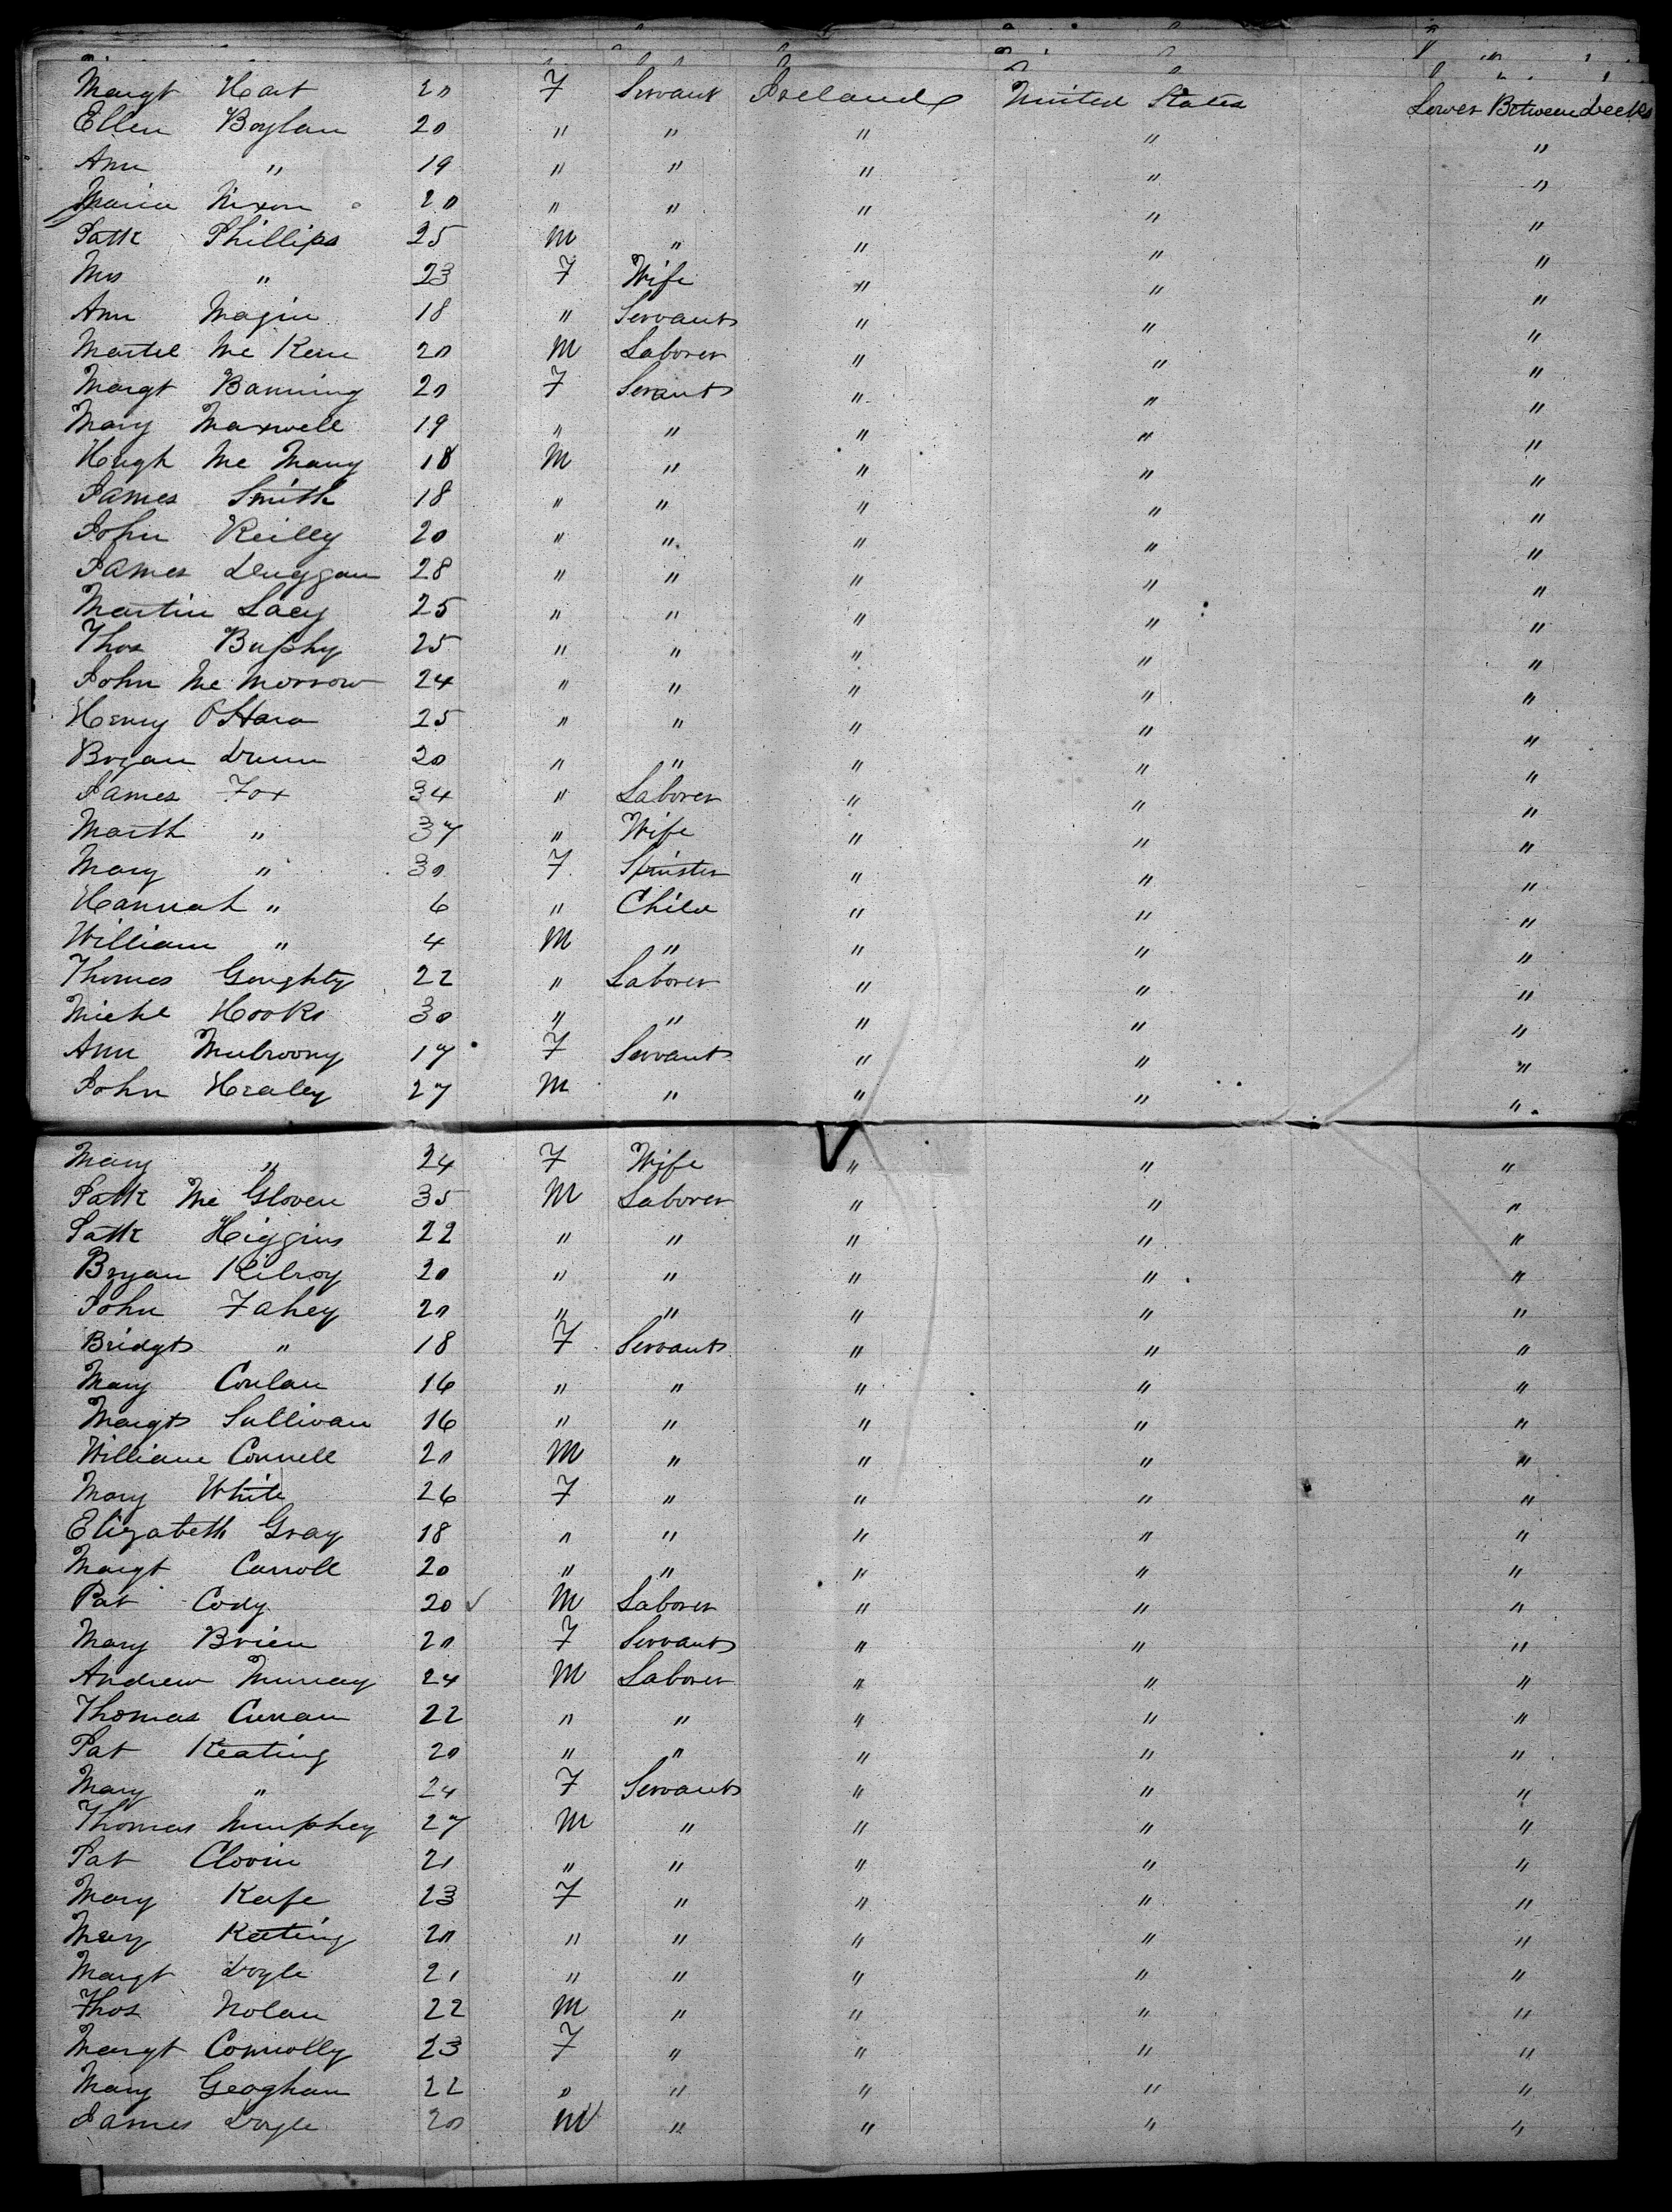 Margt Hart 20 F Servant Ireland United States Lower Between Decks
Ellen Boylan 20 " " " " "
Ann " 19 " " " " "
Maria Nixon 20 " " " " "
Patk Phillips 25 M " " " "
Mrs " 23 F Wife " " "
Ann Magin 18 " Servant " " "
Mc 20 M Laborer " " "
Margt Banning 20 F Servant " " "
Mary Maxwell 19 " " " " "
Hugh Mc Many 18 M " " " "
James Smith 18 " " " " "
John Reilly 20 " " " " "
James Duggan 28 " " " " "
Martin Lacy 25 " " " " "
Thos 25 " " " " "
John Mc Morrow 24 " " " " "
Henry O'Hara 25 " " " " "
Dunn 20 " " " " "
James Fox 34 " Laborer " " "
Marth " 37 " Wife " " "
Mary " 30 F Spinster " " "
Hannah " 6 " Child " " "
William " 4 M " " " "
Thomas Goughty 22 " Laborer " " "
Michl Hooks 30 " " " " "
Ann Mulroony 17 F Servant " " "
John Healey 27 M " " " "
Mary " 24 F Wife " " "
Patk Mc Gloven 35 M Laborer " " "
Patk Higgins 22 " " " " "
Bryan Kilroy 20 " " " " "
John Fahey 20 " " " " "
Bridgt " 18 F Servant " " "
Mary Conlan 16 " " " " "
Margt Sullivan 16 " " " " "
William Connell 20 M " " " "
Mary White 26 F " " " "
Elizabeth Gray 18 " " " " "
Margt Carroll 20 " " " " "
Pat Cody 20 M Laborer " " "
Mary Brien 20 F Servant " " "
Andrew Murray 24 M Laborer " " "
Thomas Curran 22 " " " " "
Pat Keating 20 " " " " "
Mary " 24 F Servant " " "
Thomas Murphey 27 M " " " "
Pat 21 " " " " "
Mary Keefe 23 F " " " "
Mary Keating 20 " " " " "
Margt Doyle 21 " " " " "
Thos Nolan 22 M " " " "
Margt Connolly 23 F " " " "
Mary Geoghan 22 " " " " "
James Doyle 20 M " " " "